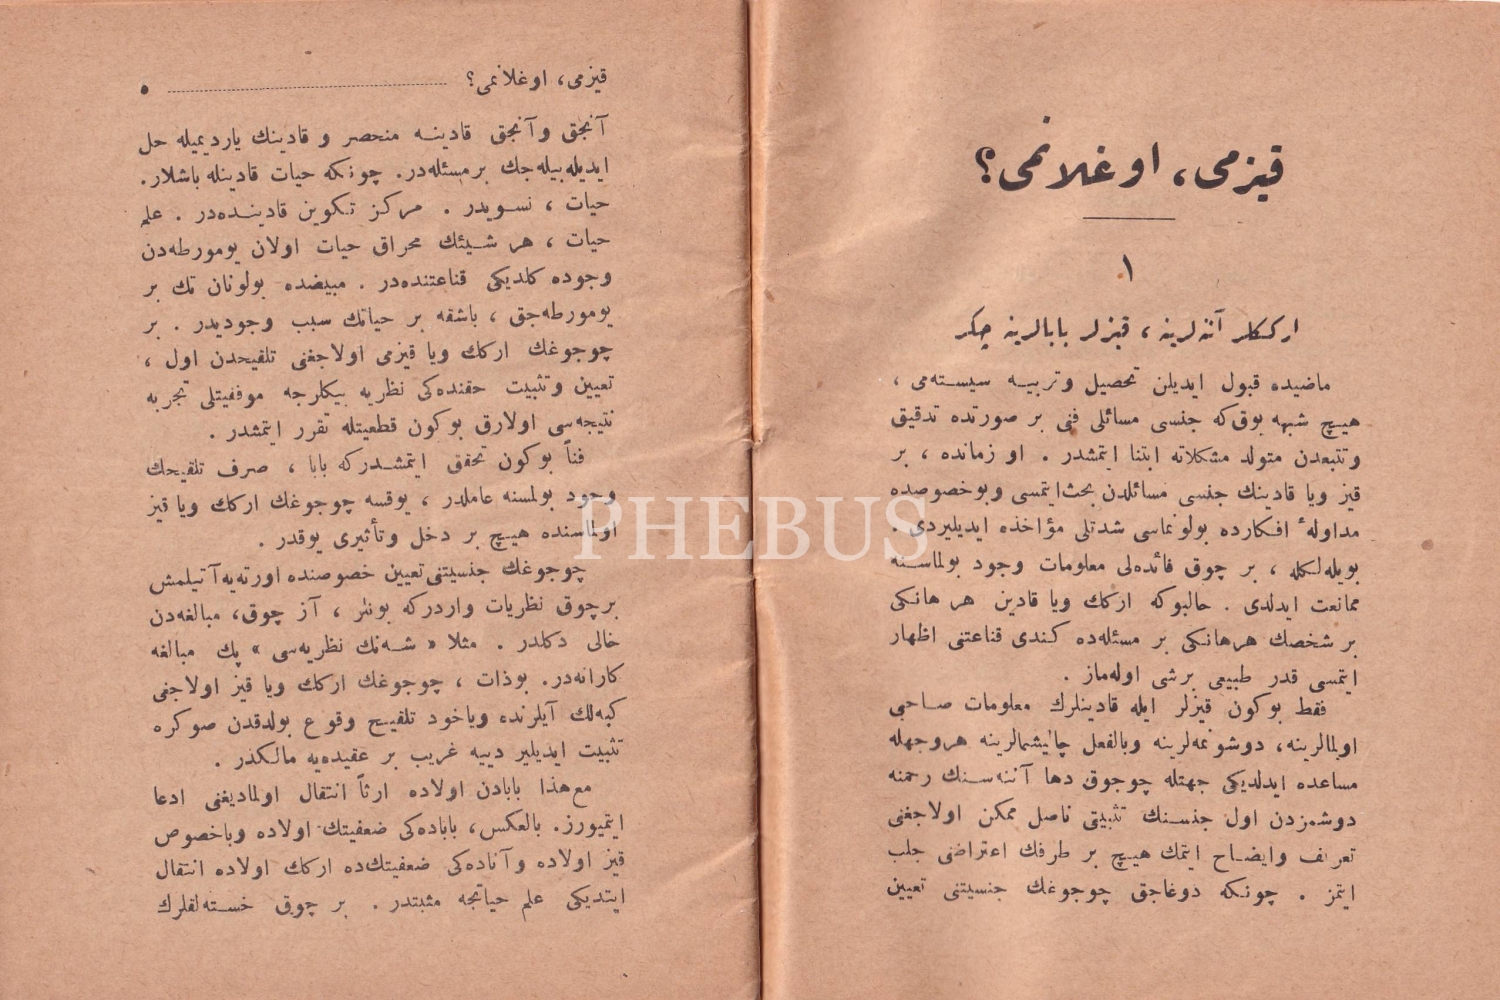 قيزمى، اوغلانمى؟
١
اركکلر آننه‌لرينه ، قيزلر بابالرينه چكر
ماضيده قبول ايديلن تحصيل وتربيه سيسته‌مى ،
هيچ شبهه يوق‌كه جنسى مسائلى فنى بر صورتده تدقيق
وتتبعدن متولد مشكلاته ابتنا ايتمشدر . او زمانده ، بر
قيز ويا قادينك جنسى مسائلدن بحث‌ايتمسى وبوخصوصده
مداولهٔ افكارده بولونماسى شدتلى مؤاخذه ايديليردى .
بويله‌لكله ، بر چوق فائده‌لى معلومات وجود بولماسنه
ممانعت ايدلدى . حالبوكه اركك ويا قادين هر هانكى
بر شخصك هرهانكى بر مسئله‌ده كندى قناعتنى اظهار
ايتمسى قدر طبيعى برشى اوله‌ماز .
فقط بوكون قيزلر ايله قادينلرك معلومات صاحبى
اولمالرينه، دوشونمه‌لرينه وبالفعل چاليشمالرينه هروجهله
مساعده ايدلديكى جهتله چوجوق دها آننه‌سنك رحمنه
دوشمزدن اول جنسنك تثبيتى ناصل ممكن اولاجغنى
تعريف وايضاح ايتمك هيچ بر طرفك اعتراضنى جلب
ايتمز . چونكه دوغاجق چوجوغك جنسيتنى تعيين
قيزمى، اوغلانمى؟ ٥
آنجق وآنجق قادينه منحصر و قادينك يارديميله حل
ايديله‌بيله‌جك برمسئله‌در. چونكه حيات قادينله باشلار.
حيات ، نسويدر . مركز تكوين قادينده‌در . علم
حيات ، هر شيئك محراق حيات اولان يومورطه‌دن
وجوده كلديكى قناعتنده‌در . مبيضده بولونان تك بر
يومورطه‌جق ، باشقه بر حياتك سبب وجوديدر . بر
چوجوغك اركك ويا قيزمى اولاجغنى تلقيحدن اول ،
تعيين وتثبيت حقنده‌كى نظريه بيكلرجه موفقيتلى تجربه
نتيجه‌سى اولارق بوكون قطعيتله تقرر ايتمشدر .
فناً بوكون تحقق ايتمشدركه بابا ، صرف تلقيحك
وجود بولمسنه عاملدر ، يوقسه چوجوغك اركك ويا قيز
اولماسنده هيچ بر دخل وتأثيرى يوقدر .
چوجوغك جنسيتنى تعيين خصوصنده اورته‌يه آتيلمش
برچوق نظريات واردركه بونلر ، آز چوق، مبالغه‌دن
خالى دكلدر . مثلا « شه‌نك نظريه‌سى » پك مبالغه
كارانه‌در. بوذات ، چوجوغك اركك ويا قيز اولاجغى
كبه‌لك آيلرنده وياخود تلقيح وقوع بولدقدن صوكره
تثبيت ايديلير دييه غريب بر عقيده‌يه مالكدر .
مع‌هذا بابادن اولاده ارثاً انتقال اولماديغنى ادعا
ايتميورز. بالعكس، باباده‌كى ضعفيتك اولاده وباخصوص
قيز اولاده وآناده‌كى ضعفيتك‌ده اركك اولاده انتقال
ايتديكى علم حياتجه مثبتدر . بر چوق خسته‌لقلرك
PHEBUS